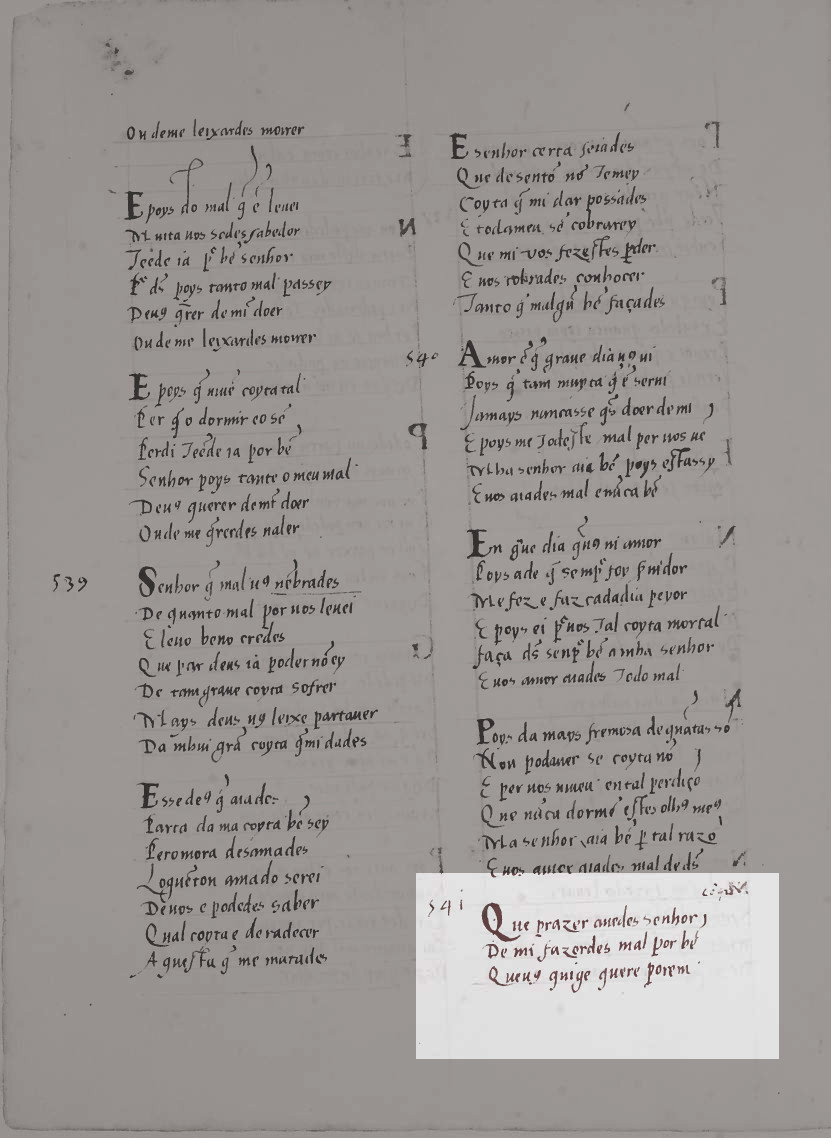 Ou deme leixardes morrer
E poys do mal q̃ ẽ leuei
Muita uos sodes sabedor
Teẽde ia pʳ bẽ senhor
Pʳ ds̃ poys tanto mal passey
Deus q̃rer de mĩ doer
Ou de me leixardes morrer
E poys q̃ niuẽ coyta tal
Per q̃ o dormir e o sẽ
Perdi Teẽde ia por bẽ
Senhor poys tanto o meu mal
Deus querer demĩ doer
Ou de me q̃rerdes ualer
539
Senhor q̃ mal uꝯ nẽbrades
De quanto mal por uos leuei
E leuo beno credes
Que par deus ia poder nõ ey
De tam graue coyta sofrer
Mays deus uꝯ leixe partauer
Da mhui grã coyta q̃ mi dades
Esse deꝯ q̃ aiades
Parta da ma coyta bẽ sey
Pero mora desamades
Loguẽton amado serei
Deuos e podedes saber
Qual coyta e de radecer
A questa q̃ me matades
E senhor certa seiades
Que desento nõ Temey
Coyta q̃ mi dar possades
E todameu sẽ cobrarey
Que mi uos fezestes p̃der
E uos tokrades conhocer
Tanto q̃ malgũ bẽ façades
540
Amor e q̃ graue dia uꝯ ui
Poys q̃ tam muyta q̃ ẽ serui
Jamays nuncasse q̃s doer de mi
E poys me Todeste mal per uos ue
Mha senhor aia bẽ poys est assy
E uos aiades mal e nũca bẽ
Em que dia q̃ uꝯ ui amor
Poys ade q̃ semp̃ foy p̃uidor
Me fez e faz cada dia peyor
E poys ei p̃ uos Tal coyta mortal
faça ds̃ senp̃ bẽ a mha senhor
E uos amor aiades Todo mal
Poys da mays fremosa de quãtas sõ
Non podauer se coyta nõ
E per uos uiueu en tal perdiçõ
Que nũca dormẽ estes olhꝯ meꝯ
Ma senhor aia bẽ p̃ tal razõ
E uos amor aiades mal de ds̃
541
Que prazer auedes senhor
De mi fazerdes mal por bẽ
Queuꝯ quige quere porem